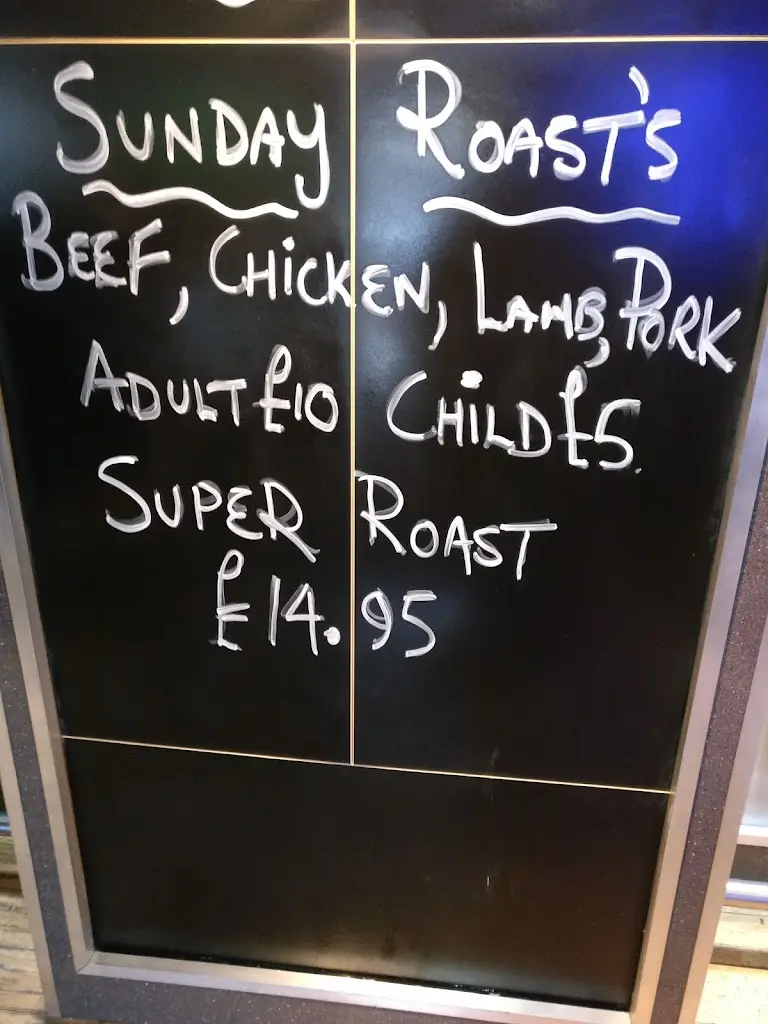 SUNDAY ROAST'S
BEEF, CHICKEN, LAMB, PORK
ADULT £10 CHILD £5.
SUPER ROAST
£14.95